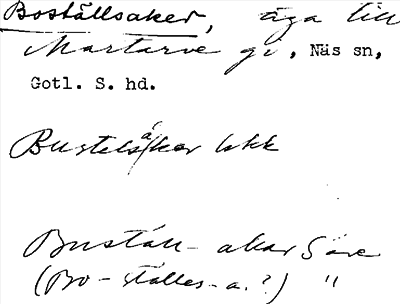 Boställsaker, äga till
Martarve gd, Näs sn,
Gotl. S. hd.
Bustelsåker
Buställ- akar Säve
(Bo-ställes-a.?) "